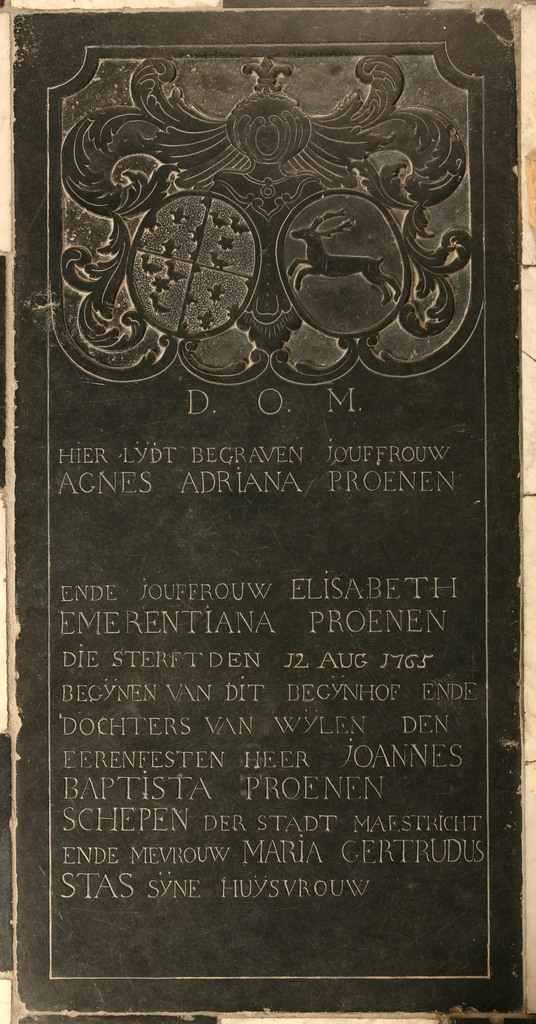 D. O. M.
HIER LŸDT BEGRAVEN JOUFFROUW
AGNES ADRIANA PROENEN
ENDE JOUFFROUW ELISABETH
EMERENTIANA PROENEN
DIE STERFT DEN 12 AUG 1765
BEGŸNEN VAN DIT BEGŸNHOF ENDE
DOCHTERS VAN WŸLEN DEN
EERENFESTEN HEER JOANNES
BAPTISTA PROENEN
SCHEPEN DER STADT MAESTRICHT
ENDE MEVROUW MARIA GERTRUDUS
STAS SŸNE HUŸSVROUW